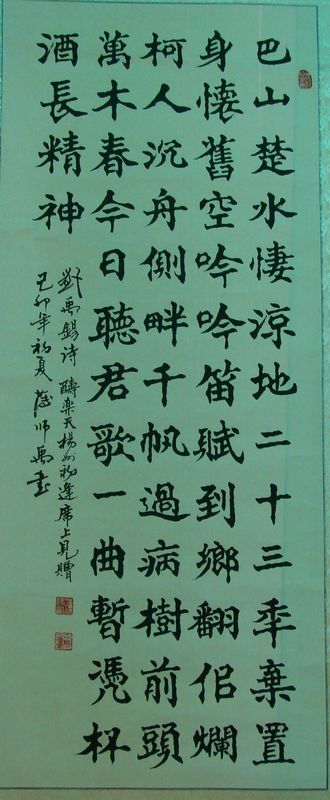 巴山楚水悽涼地二十三秊棄置
身懷舊空吟吟笛賦到鄉翻佀爛
柯人沉舟側畔千帆過病樹前頭
萬木春今日聽君歌一曲暫凴杯
酒長精神
劉禹錫诗醻樂天楊州初逢席上見贈
己卯年初夏师禹書